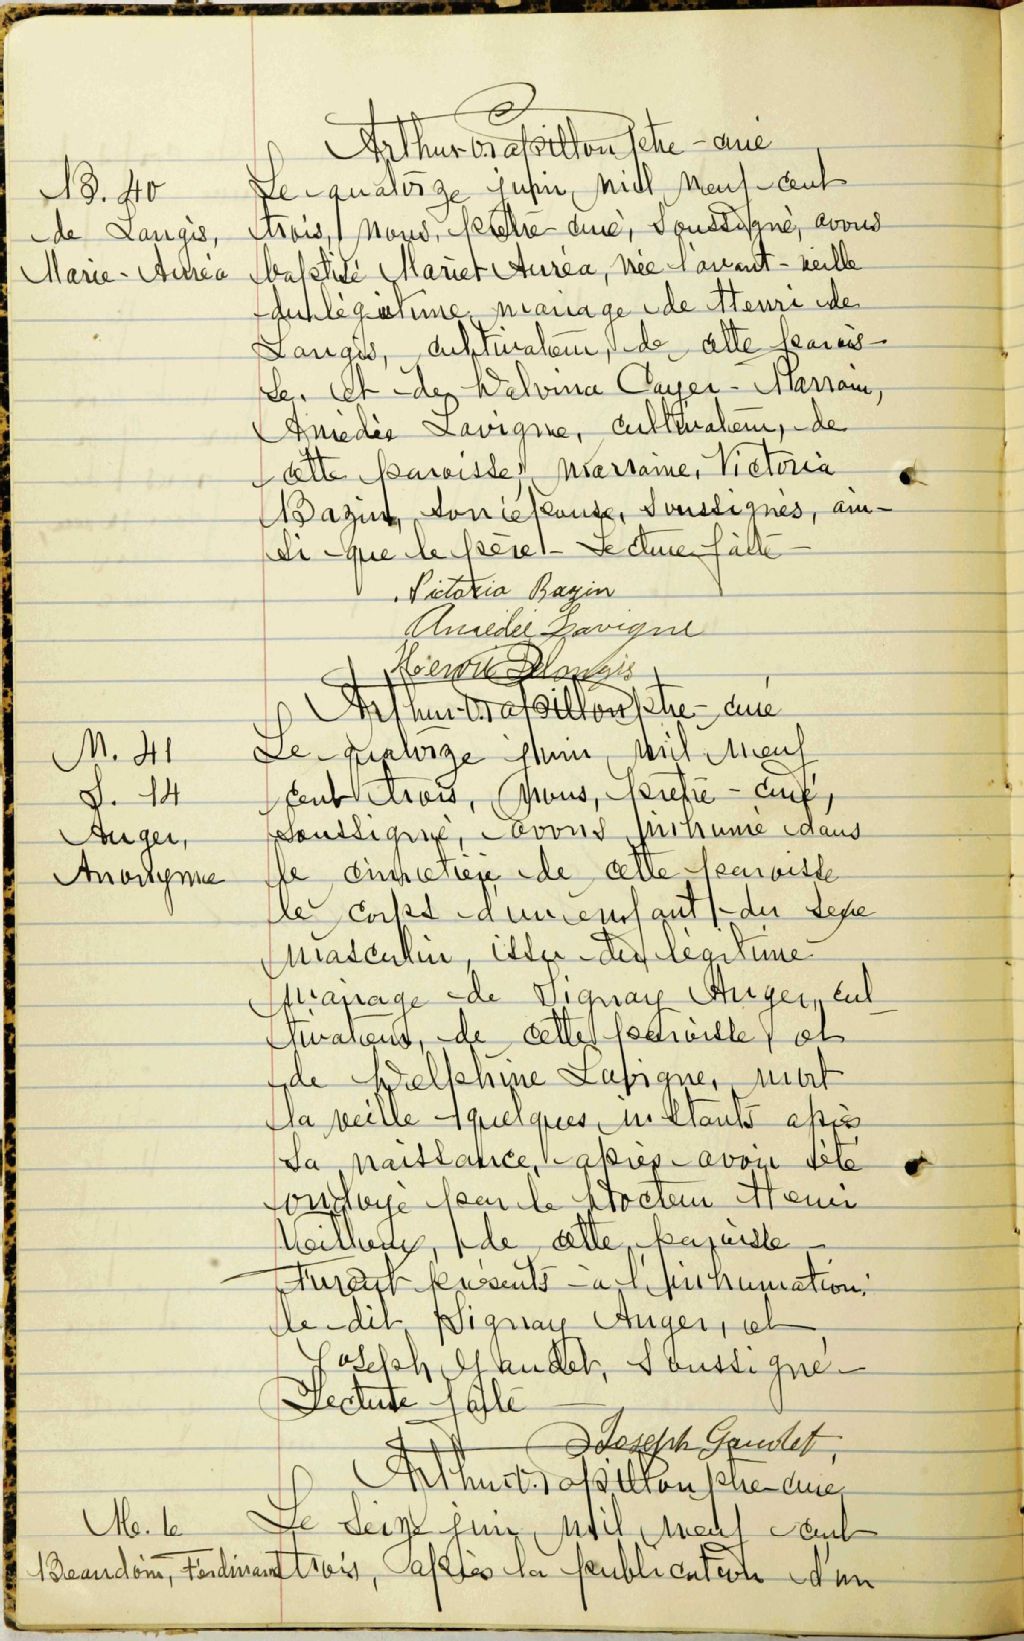 Arthur O. Papillon ptre-curé
B. 40
de Langis,
Marie-Auréa
Le quatorze juin, mil neuf cent
trois, nous, prêtre-curé, soussigné, avons
baptisé Marie-Auréa, née l'avant-veille
du légitime mariage de Henri de
Langis, cultivateur, de cette parois-
se, et de Delvina Cayer - Parrain,
Amédée Lavigne, cultivateur, de
cette paroisse, marraine, Victoria
Bazin, son épouse, soussignés, ain-
si que le père - Lecture faite -
Victoria Bazin
Amédée Lavigne
Henri Delangis
Arthur O. Papillon ptre-curé
M. 41
S. 14
Auger,
Anonyme
Le quatorze juin, mil neuf
cent trois, nous, prêtre-curé,
soussigné, avons inhumé dans
le cimetière de cette paroisse
le corps d'un enfant du sexe
masculin, issu du légitime
mariage de Signay Auger, cul-
tivateur, de cette paroisse, et
de Delphine Lavigne, mort
la veille quelques instants après
sa naissance, après avoir été
ondoyé par le Docteur Henri
Veilleux, de cette paroisse -
Furent présents à l'inhumation:
le dit Signay Auger, et
Joseph Gaudet, soussigné -
Lecture faite -
Joseph Gaudet,
Arthur O. Papillon ptre-curé
Me. 6
Beaudoin, Ferdinand
Le seize juin, mil neuf cent
trois, après la publication d'un